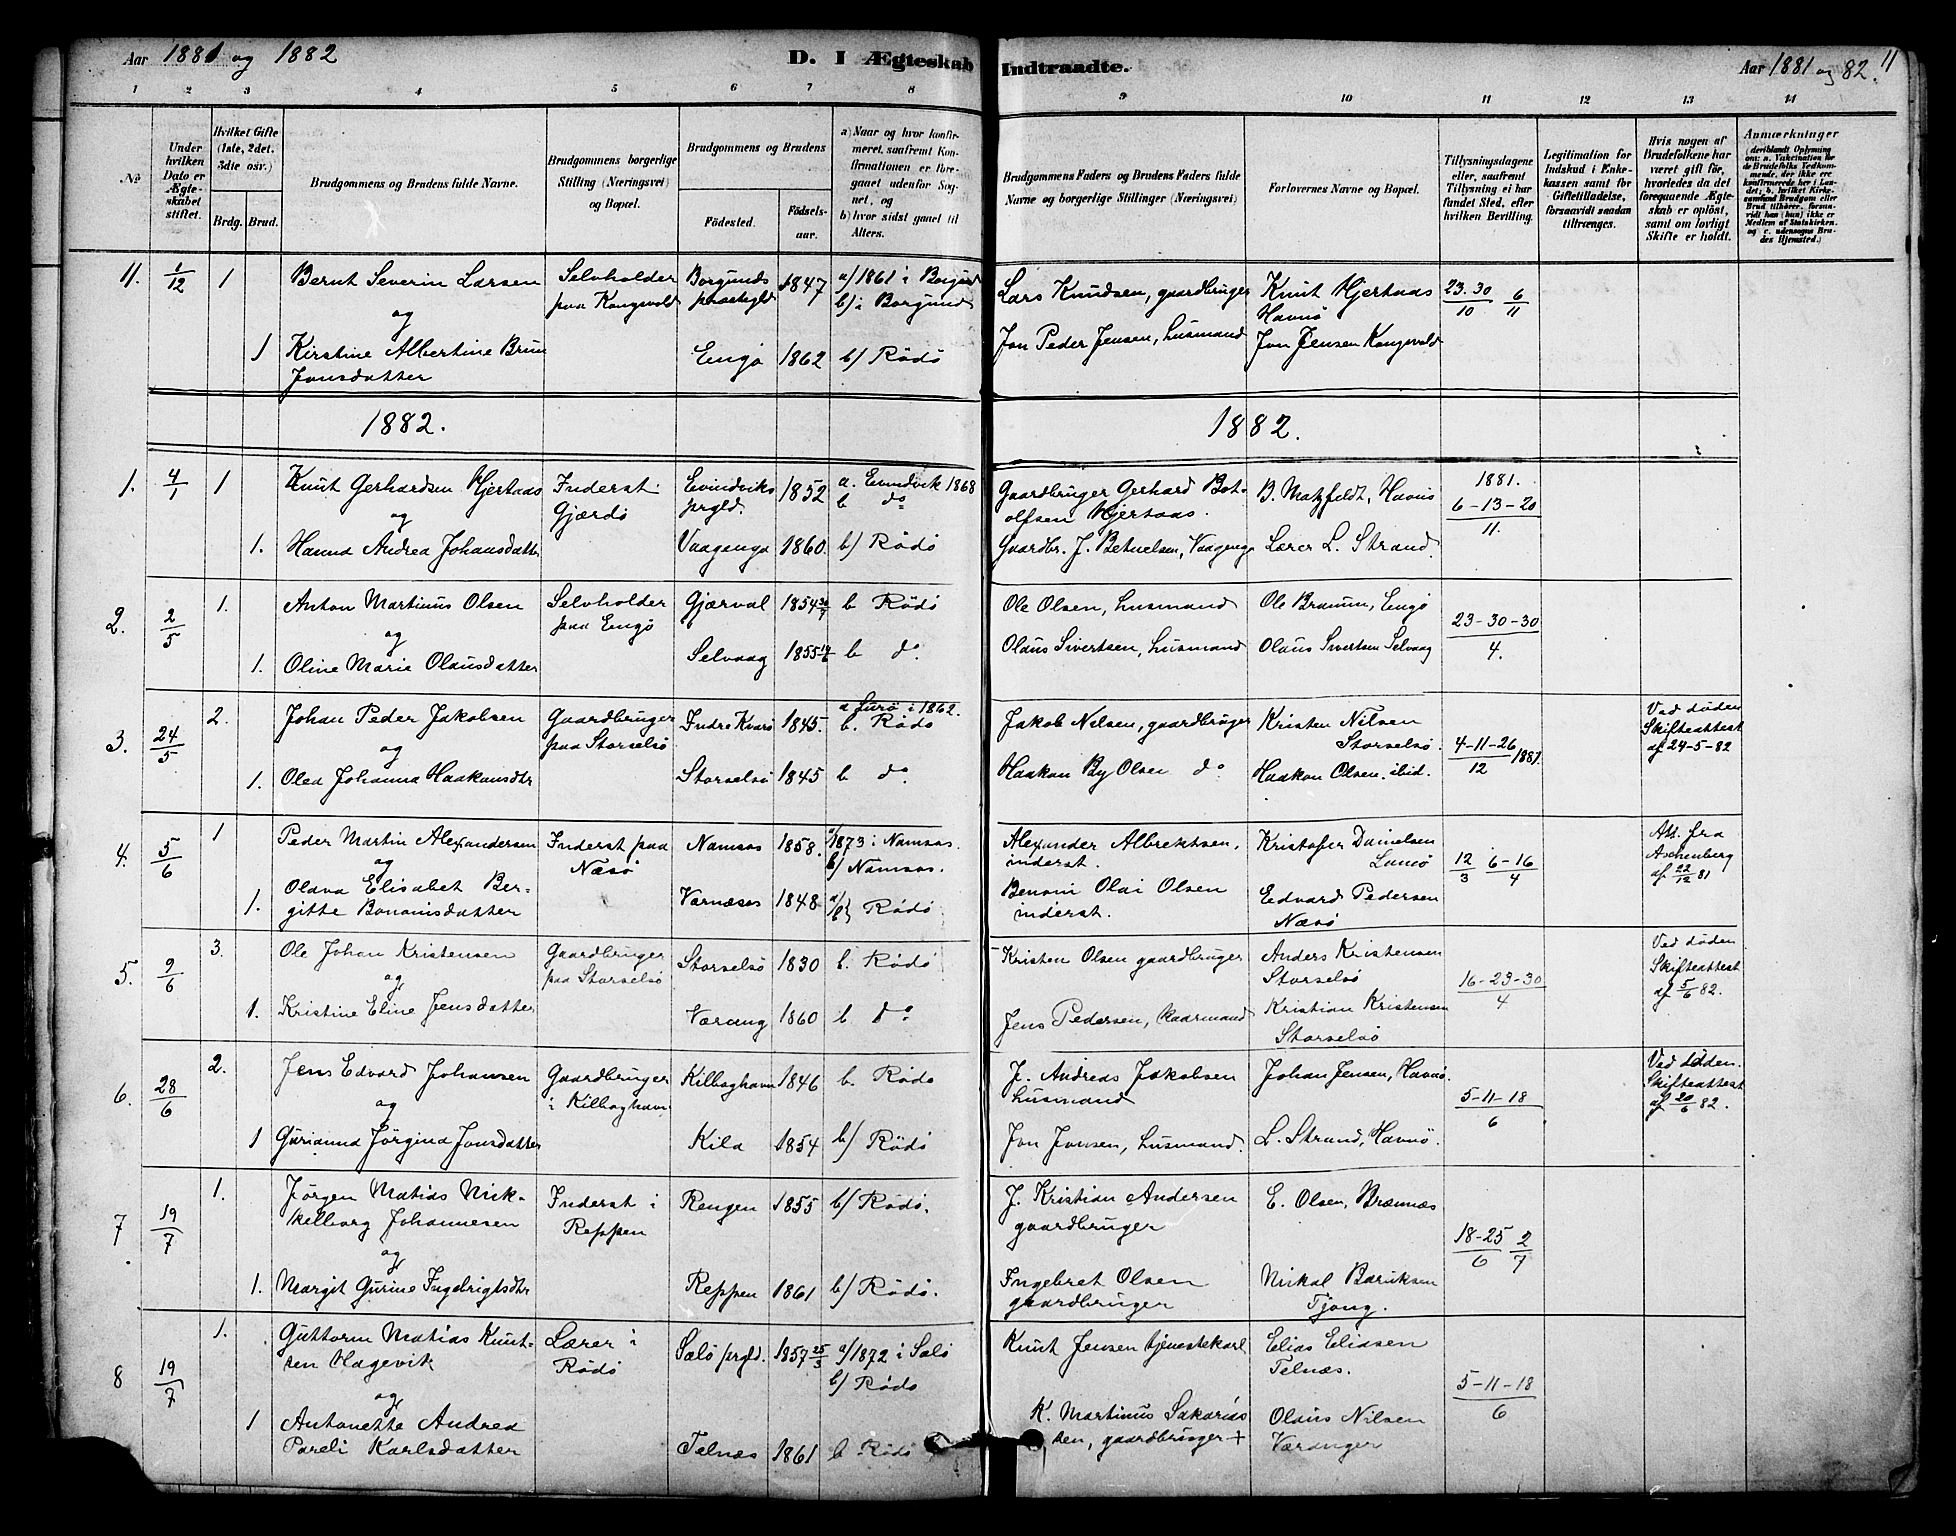 Aar 1881 og 1882
D. I Ægteskab Indtraadte.
Aar 1881 og 82.
11
1 2 3 4 5 6 7 8 9 10 11 12 13 14
No
Under hvilken Dato er Ægteskabet stiftet.
Hvilket Gifte (1ste, 2det, 3die osv.)
Brdg. Brud.
Brudgommens og Brudens fulde Navne.
Brudgommens borgerlige Stilling (Næringsvei) og Bopæl.
Brudgommens og Brudens
Födested. Födsels-aar.
a) Naar og hvor konfirmeret, saafremt Konfirmationen er foregaaet udenfor Sognet, og
b) hvor sidst gaaet til Alters.
Brudgommens Faders og Brudens Faders fulde Navne og borgerlige Stillinger (Næringsvei)
Forlovernes Navne og Bopæl.
Tillysningsdagene eller, saafremt Tillysning ei har fundet Sted, efter hvilken Bevilling.
Legitimation for Indskud i Enkekassen samt for Giftetilladelse, forsaavidt saadan tiltrænges.
Hvis nogen af Brudefolkene har været gift för, hvorledes da det foregaaende Ægteskab er oplöst, samt om lovligt Skifte er holdt.
Anmærkninger (deriblandt Oplysning om: a. Vaccination for de Brudefolks Vedkommende, der ikke ere konfirmerede her i Landet; b. hvilket Kirkesamfund Brudgom eller Brud tilhører, forsaavidt han (hun) ikke er Medlem af Statskirken, og c. udensogns Brudes Hjemsted.)
11. 1/12 1 Bernt Severin Larsen Selvholder Borgunds 1847 a/ 1861 i Borgund Lars Knudsen, gaardbruger Knut Hjertaas 23.30/10 6/11
og paa Kongsvold præstegjld b/ i Borgund Havnö
1 Kirstine Albertine Brun Engö 1862 b/ Rödö Jon Peder Jensen, husmand Jon Jensen Kongsvold
Jonsdatter
1882. 1882.
1. 4/1 1 Knut Gerhardsen Hjertaas Inderst Evindviks 1852 a. Evindvik 1868 Gaardbruger Gerhard Bot- B. Matzfeldt, Havnö 1881.
og Gjærdö prgld. b do olfsen Hjertaas. 6-13-20/11.
1. Hanna Andrea Johansdatter Vaagenga 1860. b/ Rödö Gaardbr. J. Betuelsen, Vaagenga Lærer L. Strand.
2. 2/5 1. Anton Martinus Olsen Selvholder Gjærval 1854 30/7 b Rödö Ole Olsen, husmand Ole Braun, Engö 23-30-30/4.
og paa Engö
1. Oline Marie Olausdatter Selvaag 1855 b do Olaus Sivertsen, husmand Olaus Sivertsen Selvaag
3. 24/5 2. Johan Peder Jakobsen Gaardbruger Indre Kvarö 1845. a Lurö i 1862. Jakob Nilsen, gaardbruger Kristen Nilsen 4-11-26/12 1881. Ved döden
og paa Storselsö b. Rödö Storselsö. Skifteattest
1. Olea Johanna Haakonsdtr Storselsö 1845 b do Haakon By Olsen do Haakon Olsen. ibid. af 24-5-82
4. 5/6 1 Peder Martin Alexandersen Inderst paa Namsos 1858. a/ 1873 i Namsos. Alexander Albrektsen, Kristofer Danielsen 12/3 6-16/4 Att. fra
og Næsö b/ Namsos. inderst. Lunö Aschenberg
1. Olava Elisabet Ber- Værnæses 1848. a/b} Rödö Benoni Olai Olsen Edvard Pedersen af 22/12 81
gitte Bononisdatter inderst. Næsö
5. 9/6 3. Ole Johan Kristensen Gaardbruger Storselsö 1830 b. Rödö Kristen Olsen gaardbruger Anders Kristensen 16-23-30/4 Ved döden
og paa Storselsö Storselsö Skifteattest
1. Kristine Eline Jensdatter Værang 1860 b do Jens Pedersen, kaarmand Kristian Kristensen af 5/6 82.
Storselsö
6. 28/6 2. Jens Edvard Johansen Gaardbruger Kilboghavn 1846 b. Rödö J. Andreas Jakobsen Johan Jensen, Havnö. 5-11-18/6 Ved döden.
og i Kilboghavn husmand Skifteattest
1 Gurianna Jörgina Jonsdatter Kila 1854 b/ Rödö Jon Jonsen, husmand. L. Strand, Havnö. af 20/6 82.
7 19/7 1. Jörgen Matias Mik- Inderst i Rengen 1855 b/ Rödö. J. Kristian Andersen E. Olsen, Brænnæs 18-25/6 2/7
kelborg Johannesen Reppen gaardbruger
og
1. Margit Gurine Ingebrigtsdtr Reppen 1861 b/ Rödö. Ingebret Olsen Mikal Baruksen
gaardbruger Tjong.
8 19/7 1. Guttorm Matias Knut- Lærer i Sælö prgld. 1857 25/3 a/ 1872 i Sælö Knut Jensen tjenestekarl Elias Eliasen 5-11-18/6
sen Hagevik Rödö b/ Rödö Telnæs.
og
1 Antonette Andrea Telnæs 1861 b Rödö K. Martinus Sakarias- Olaus Nilsen
Pareli Karlsdatter sen, gaardbruger + Væranger